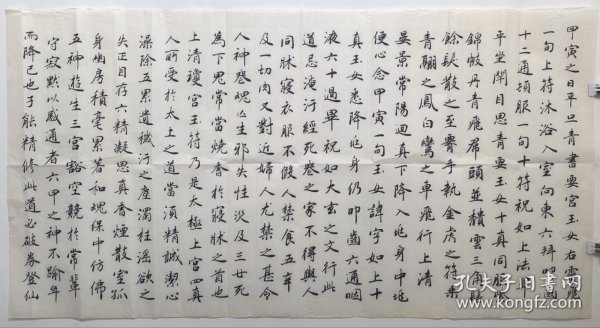 甲寅之日平旦青書要宮玉女右靈飛
一旬上符沐浴入室向東六拜叩齒
十二通頓服一旬十符祝如上法畢
平坐閉目思要宮玉女十真同服紫
錦帔丹青飛帬頭並頹雲三角髻
餘髮散之至要手執金虎之符乘
青翮之鳳白鸞之車飛行上清
晏景常陽迴真下降入兆身中兆
便心念甲寅一旬玉女諱字如上十
真玉女悉降兆身仍叩齒六通咽
液六十過畢祝如大玄之文行此
道忌淹汙經死喪之家不得與人
同牀寢衣服不假人禁食五辛
及一切肉又對近婦人尤禁之甚令
人神喪魂亡生邪失性災及三世死
為下鬼常當燒香於寢牀之首也
上清瓊宮玉符乃是太極上宮四真
人所受於太上之道當須精誠潔心
澡除五累遺穢汙之塵濁杜淫欲之
失正目存六精凝思真香煙散室孤
身幽房積毫累著和魂保中仿佛
五神遊生三宮豁空競於常輩
守寂默以感通者六甲之神不踰年
而降己也子能精修此道必破券登仙
孔夫子旧书网